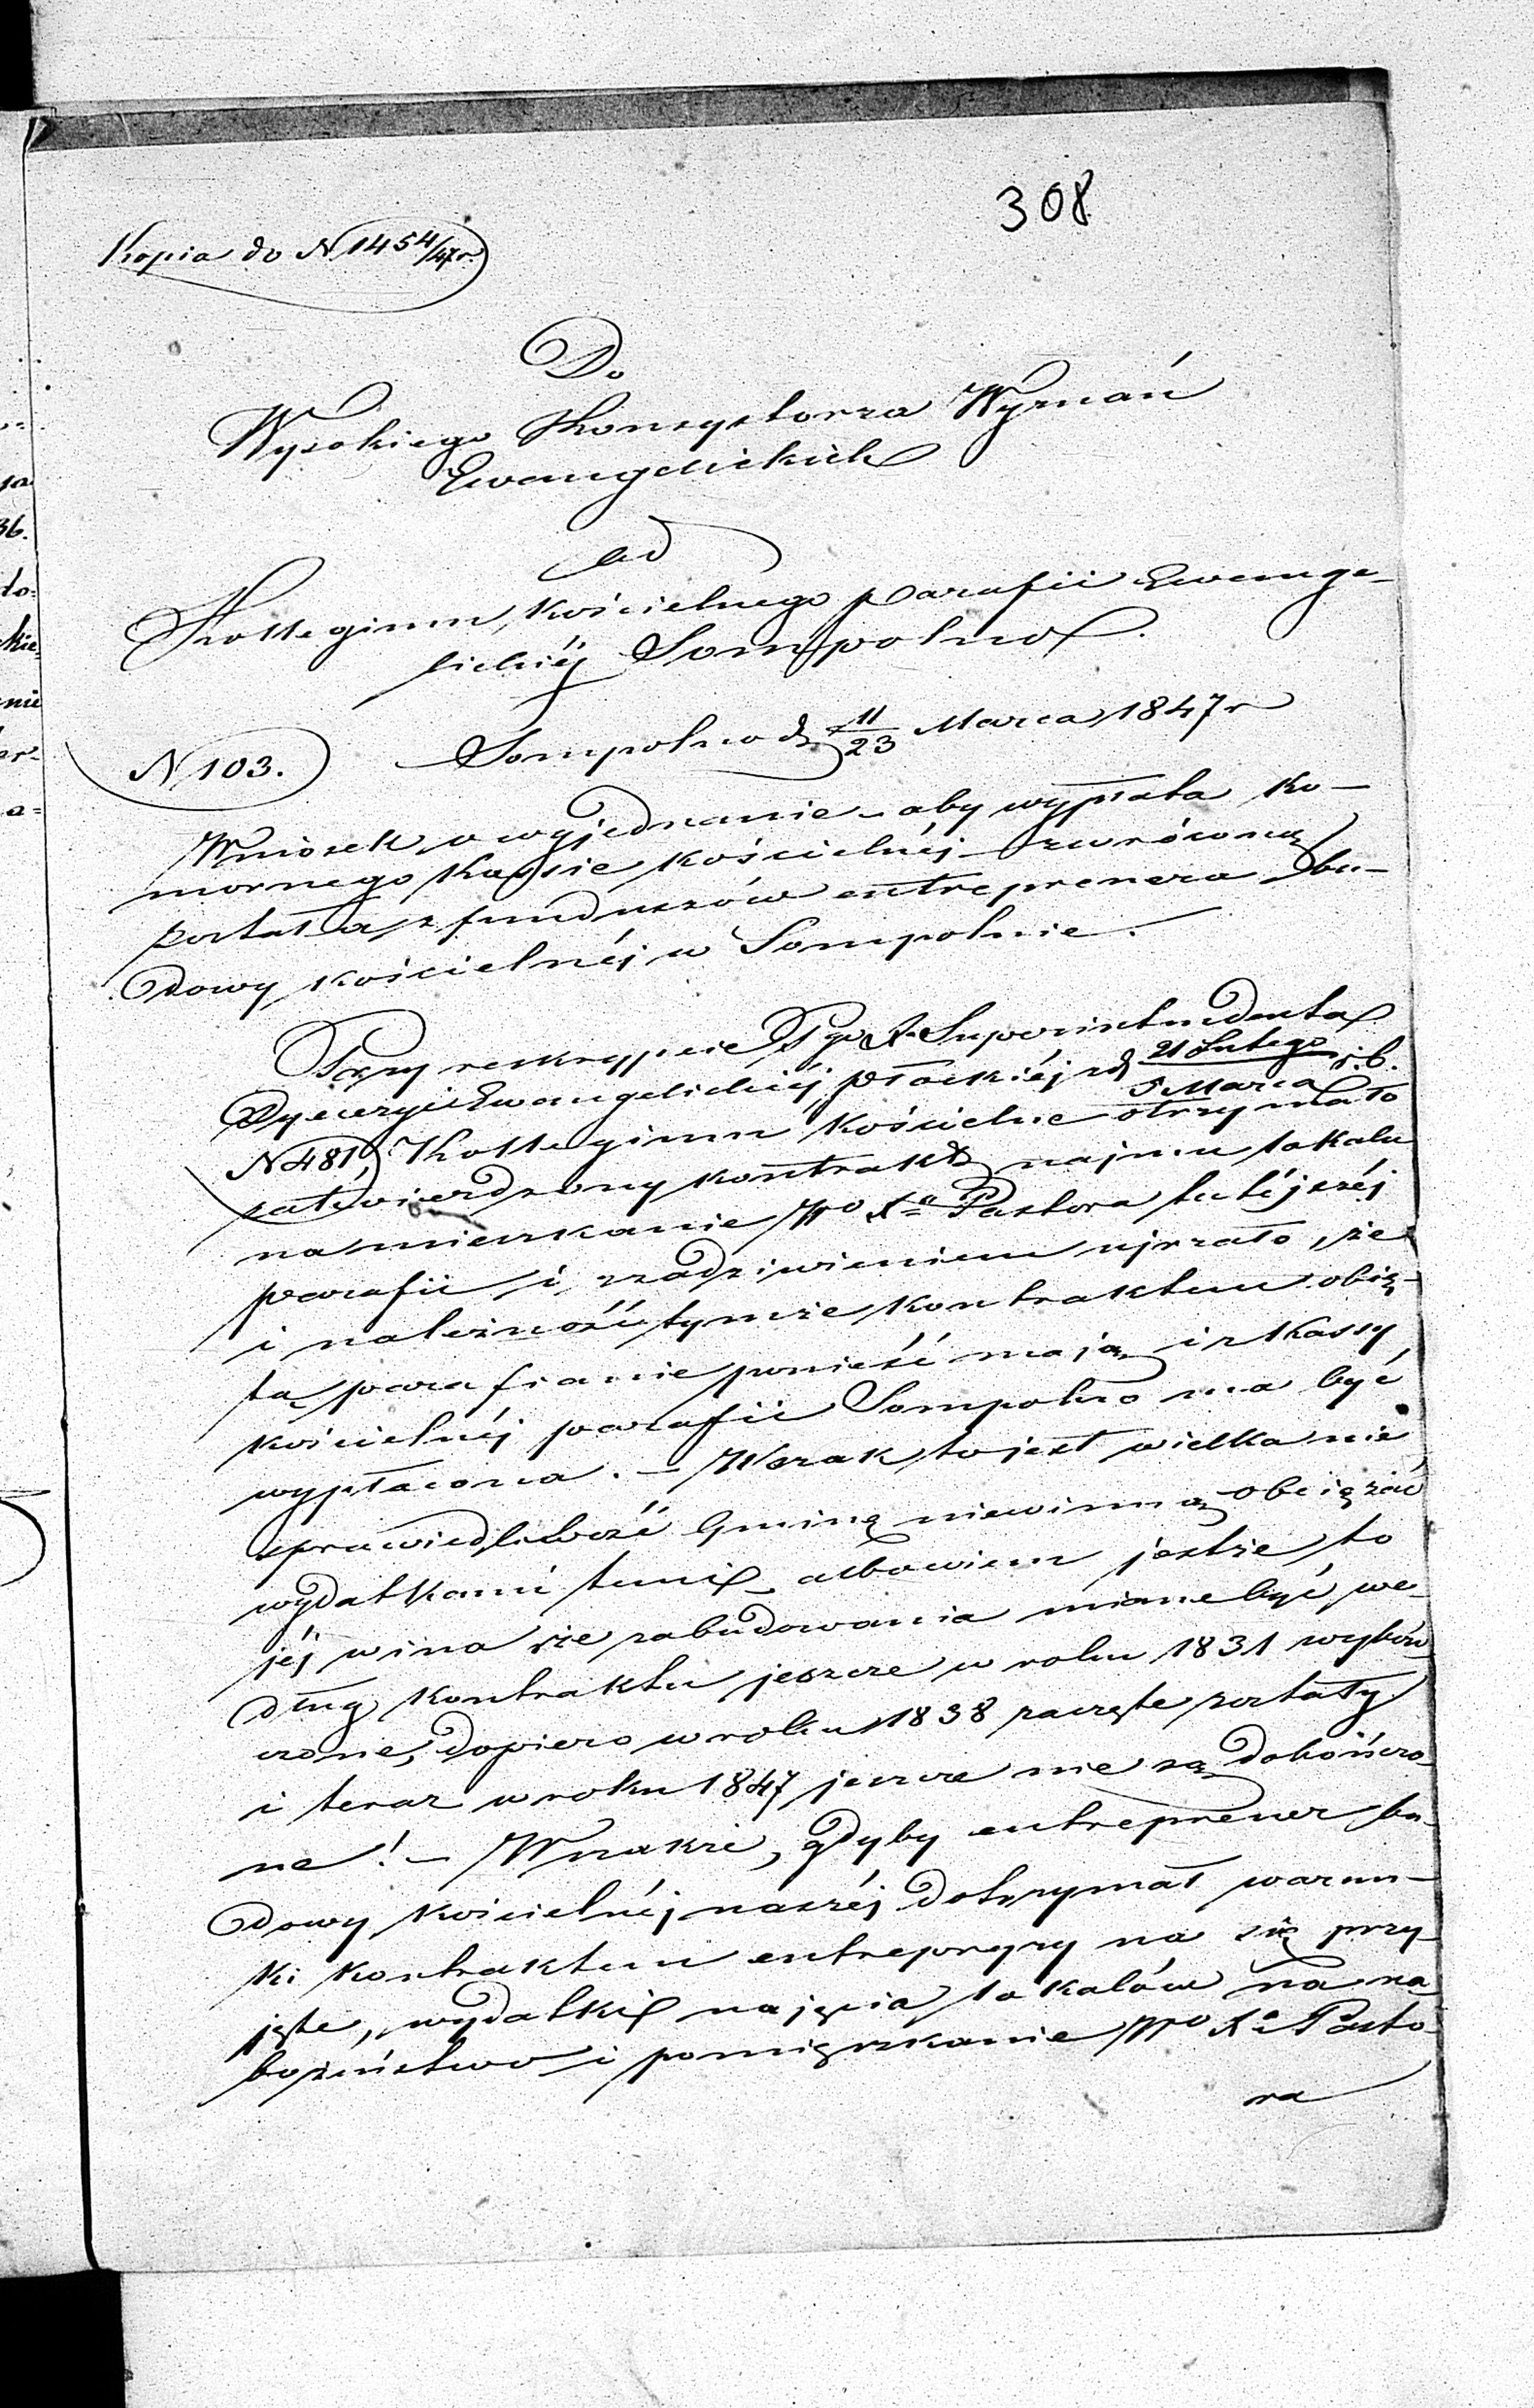 308
Kopia do N 1454/47 r.
Do
Wysokiego Konsystorza Wyznań
Ewangelickich
od
Kollegium Kościelnego parafii Ewange-
lickiéj Sompolno.
N 103.
Sompolno d. 11/23 Marca 1847 r
Wniosek o wyjednanie aby wypłata ko-
mornego Kassie Kościelnéj zwróconą
została z funduszów entreprenera bu-
dowy kościelnéj w Sompolnie.
Przy reskrypcie Superintendenta
Dyecezyi Ewangelickiéj płockiéj z d. 21 Lutego/5 Marca r.b.
N 481, Kollegium Kościelne otrzymało
zatwierdzony kontrakt najmu lokalu
na mieszkanie Wo Xa Pastora tutéjszéj
parafii i z zadziwieniem ujrzało, że
i należność tymże kontraktem obię-
tą parafianie ponieść mają i z Kassy
kościelnéj parafii Sompolno ma być
wypłacona. – Wszak to jest wielka nie
sprawiedliwość Gminę niewinną obciążać
wydatkami temi, albowiem jestże to
jéj wina że zabudowania miane być we-
dług kontraktu jeszcze w roku 1831 wykoń-
czone, dopiero w roku 1838 zaczęte zostały
i teraz w roku 1847 jeszcze nie są dokończo-
ne! – Wszakże, gdyby entreprener bu-
dowy kościelnéj naszéj dotrzymał warun-
ki kontraktem entrepryzy na się przy-
jęte, wydatki najęcia lokalów na na-
bożeństwo i pomięszkanie Wo Xa Pasto-
ra